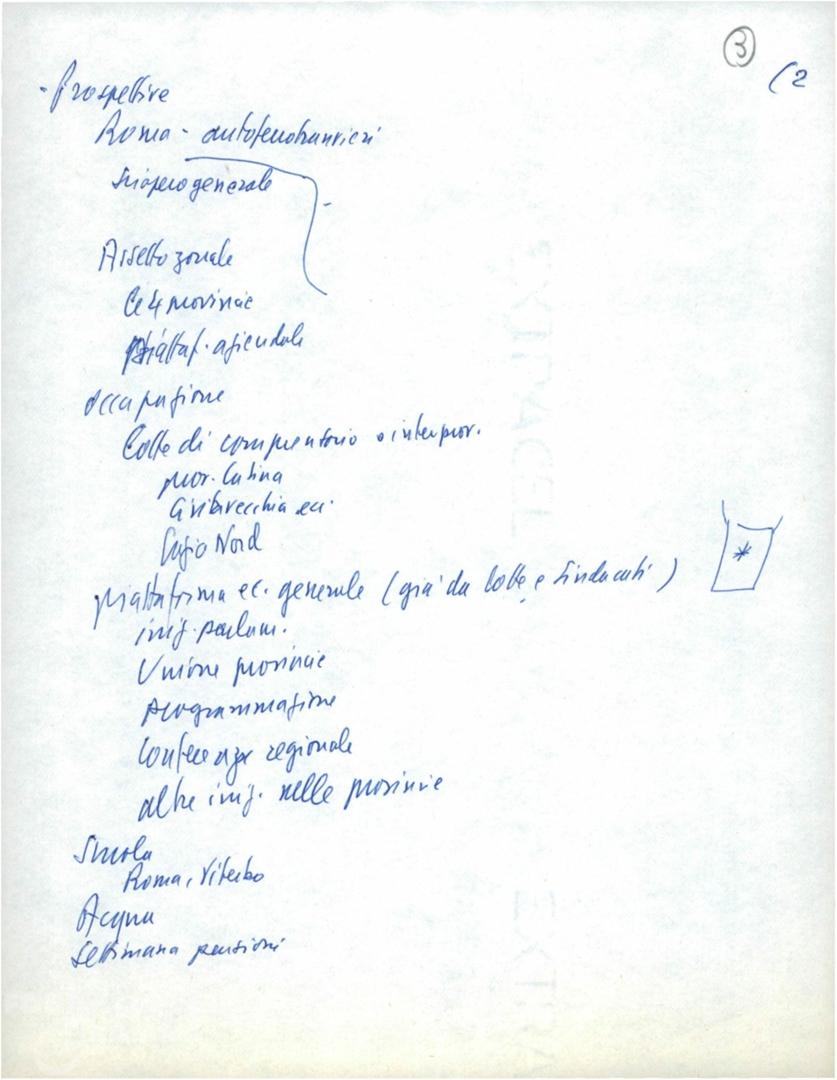 3
(2
- Prospettive
Roma - autoferrotranvieri
Sciopero generale
Assetto zonale
Le 4 provincie
piattaf. aziendale
occupazione
Lotte di comprensorio o interprov.
prov. Latina
Civitavecchia ecc.
Lazio Nord
piattaforma ec. generale (già da lotte e sindacati)
*
iniz. parlam.
Unione provincie
programmazione
Conferenza regionale
altre iniz. nelle provincie
Scuola
Roma, Viterbo
Acqua
Settimana pensioni